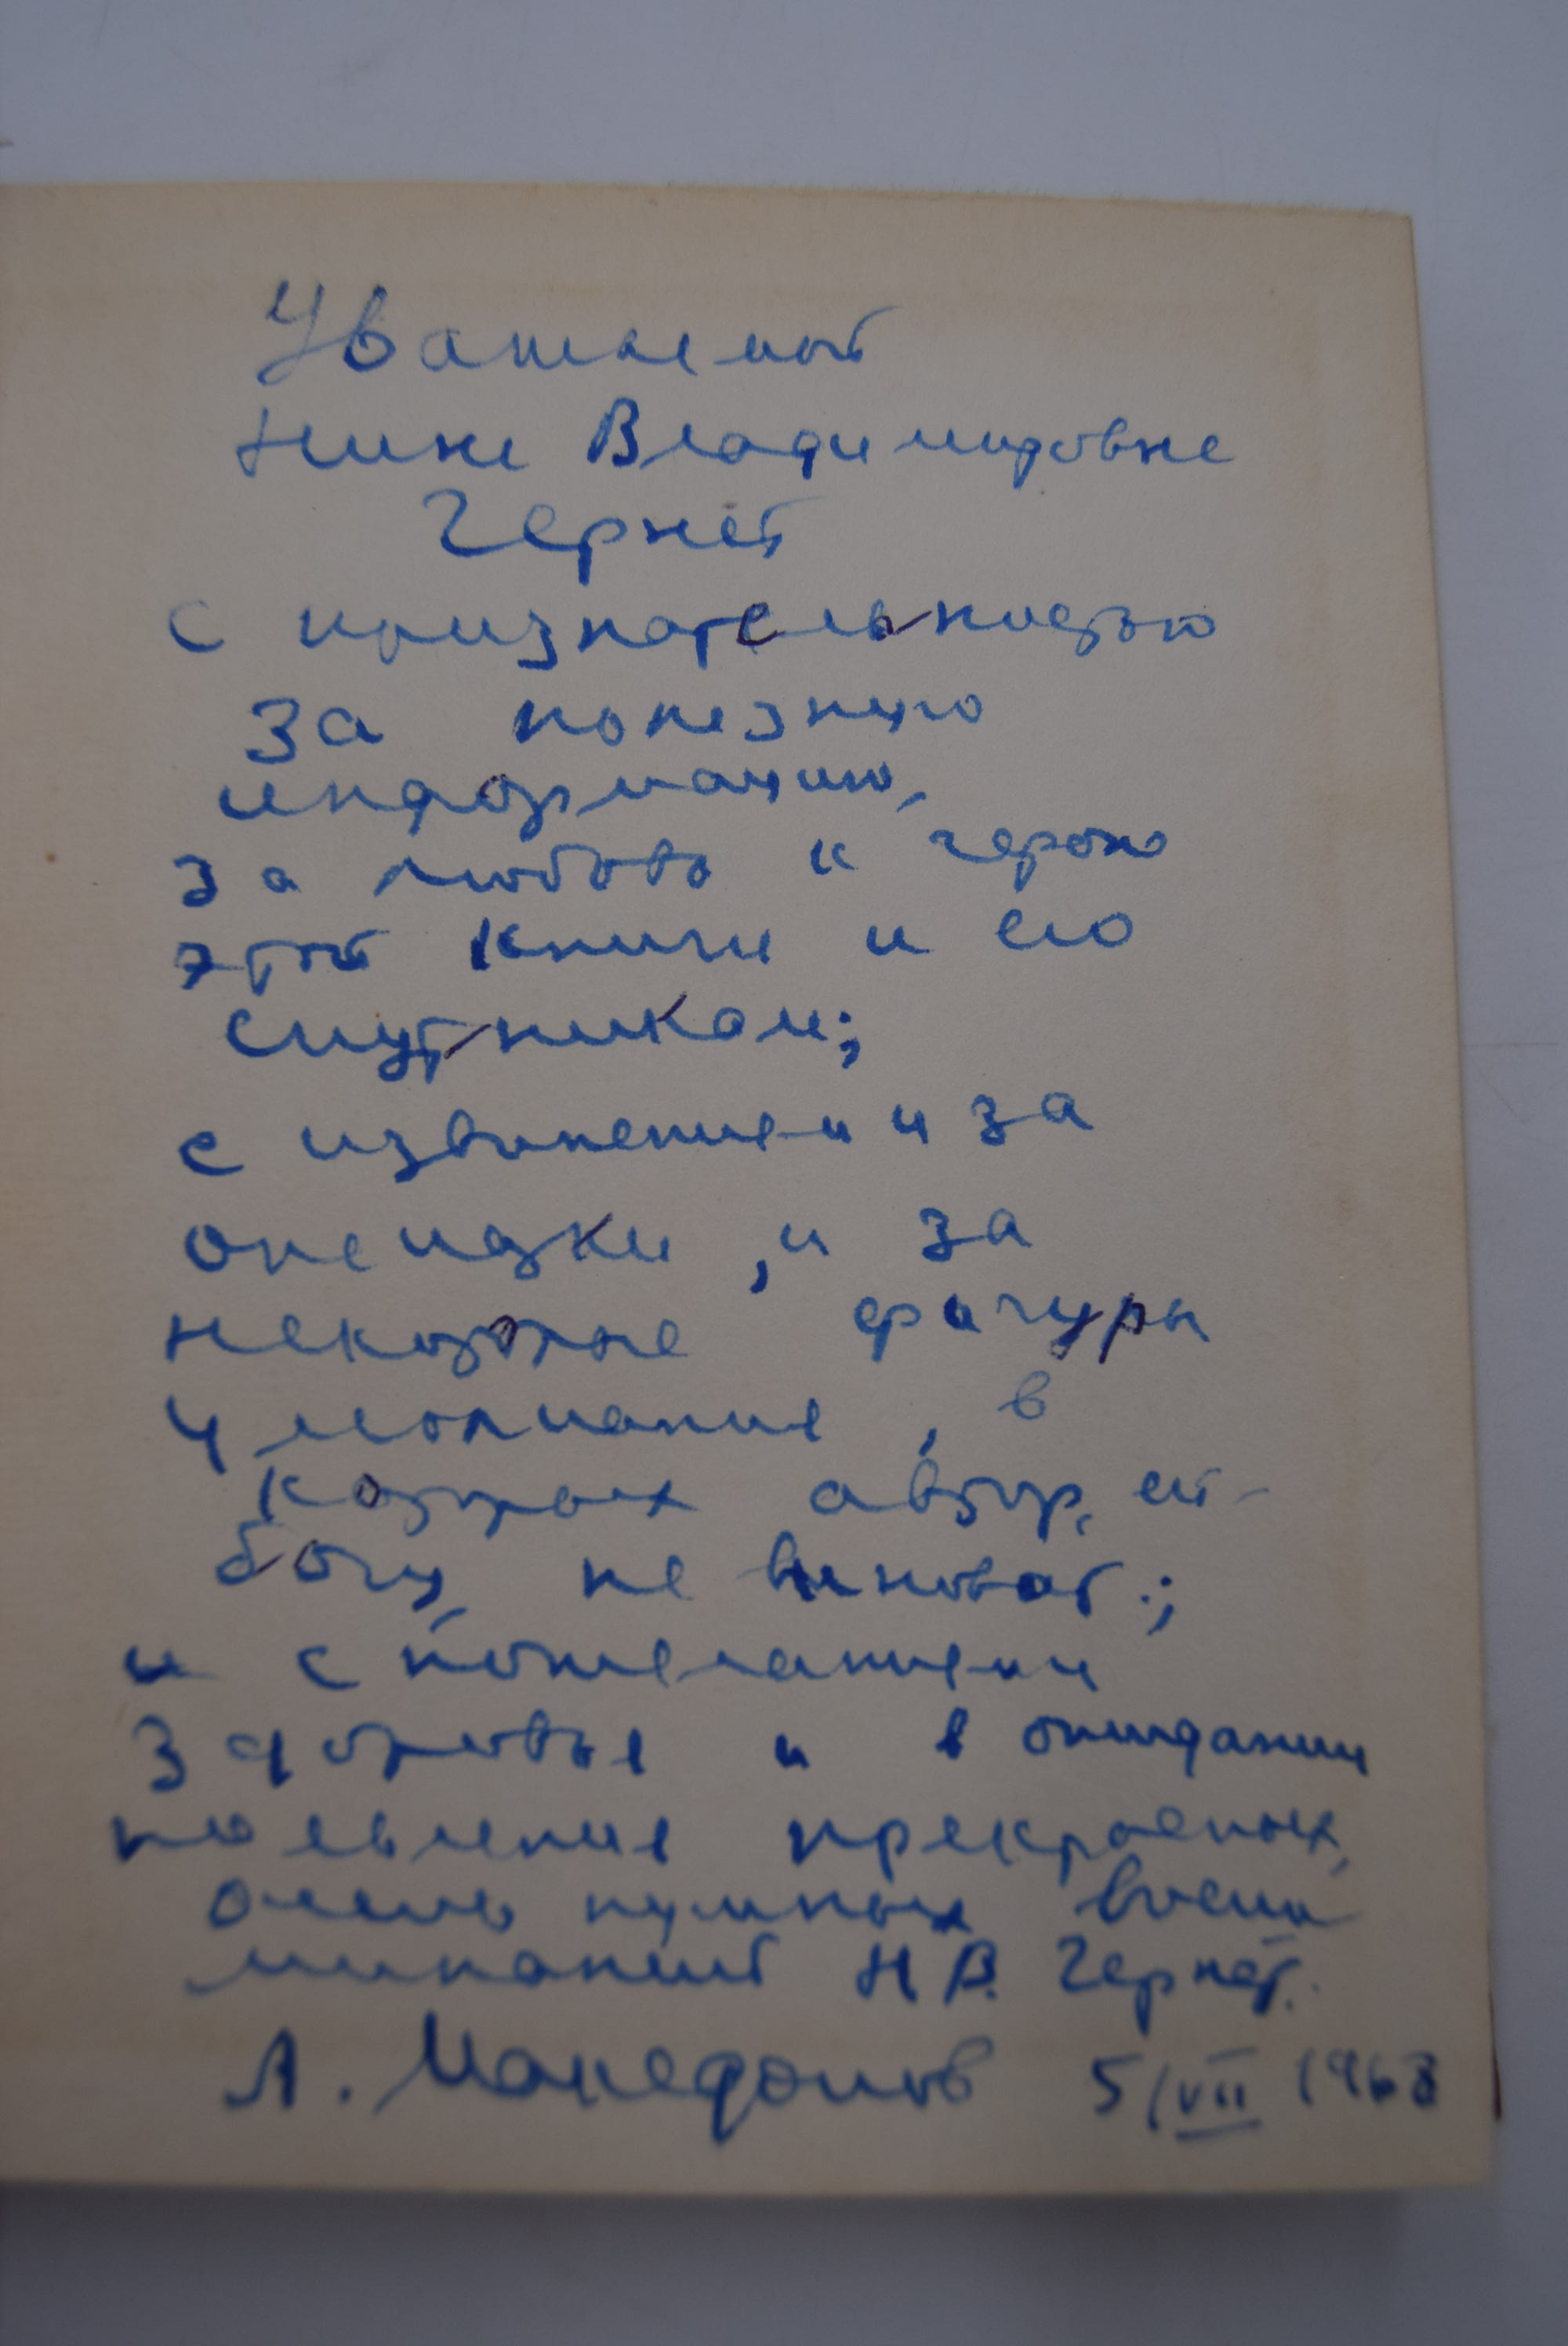 Уважаемой
Нине Владимировне
Гернет
с признательностью
за полезную
информацию,
за любовь к герою
этой книги и его
спутникам;
с извинениями за
описки, и за
некоторые фигуры
умолчания, в
которых автор, ей-
богу, не виноват.;
и с пожеланиями
здоровья и в ожидании
появления прекрасных,
очень нужных воспо
минаний Н.В. Гернет.
А. Македонов 5/VII 1968